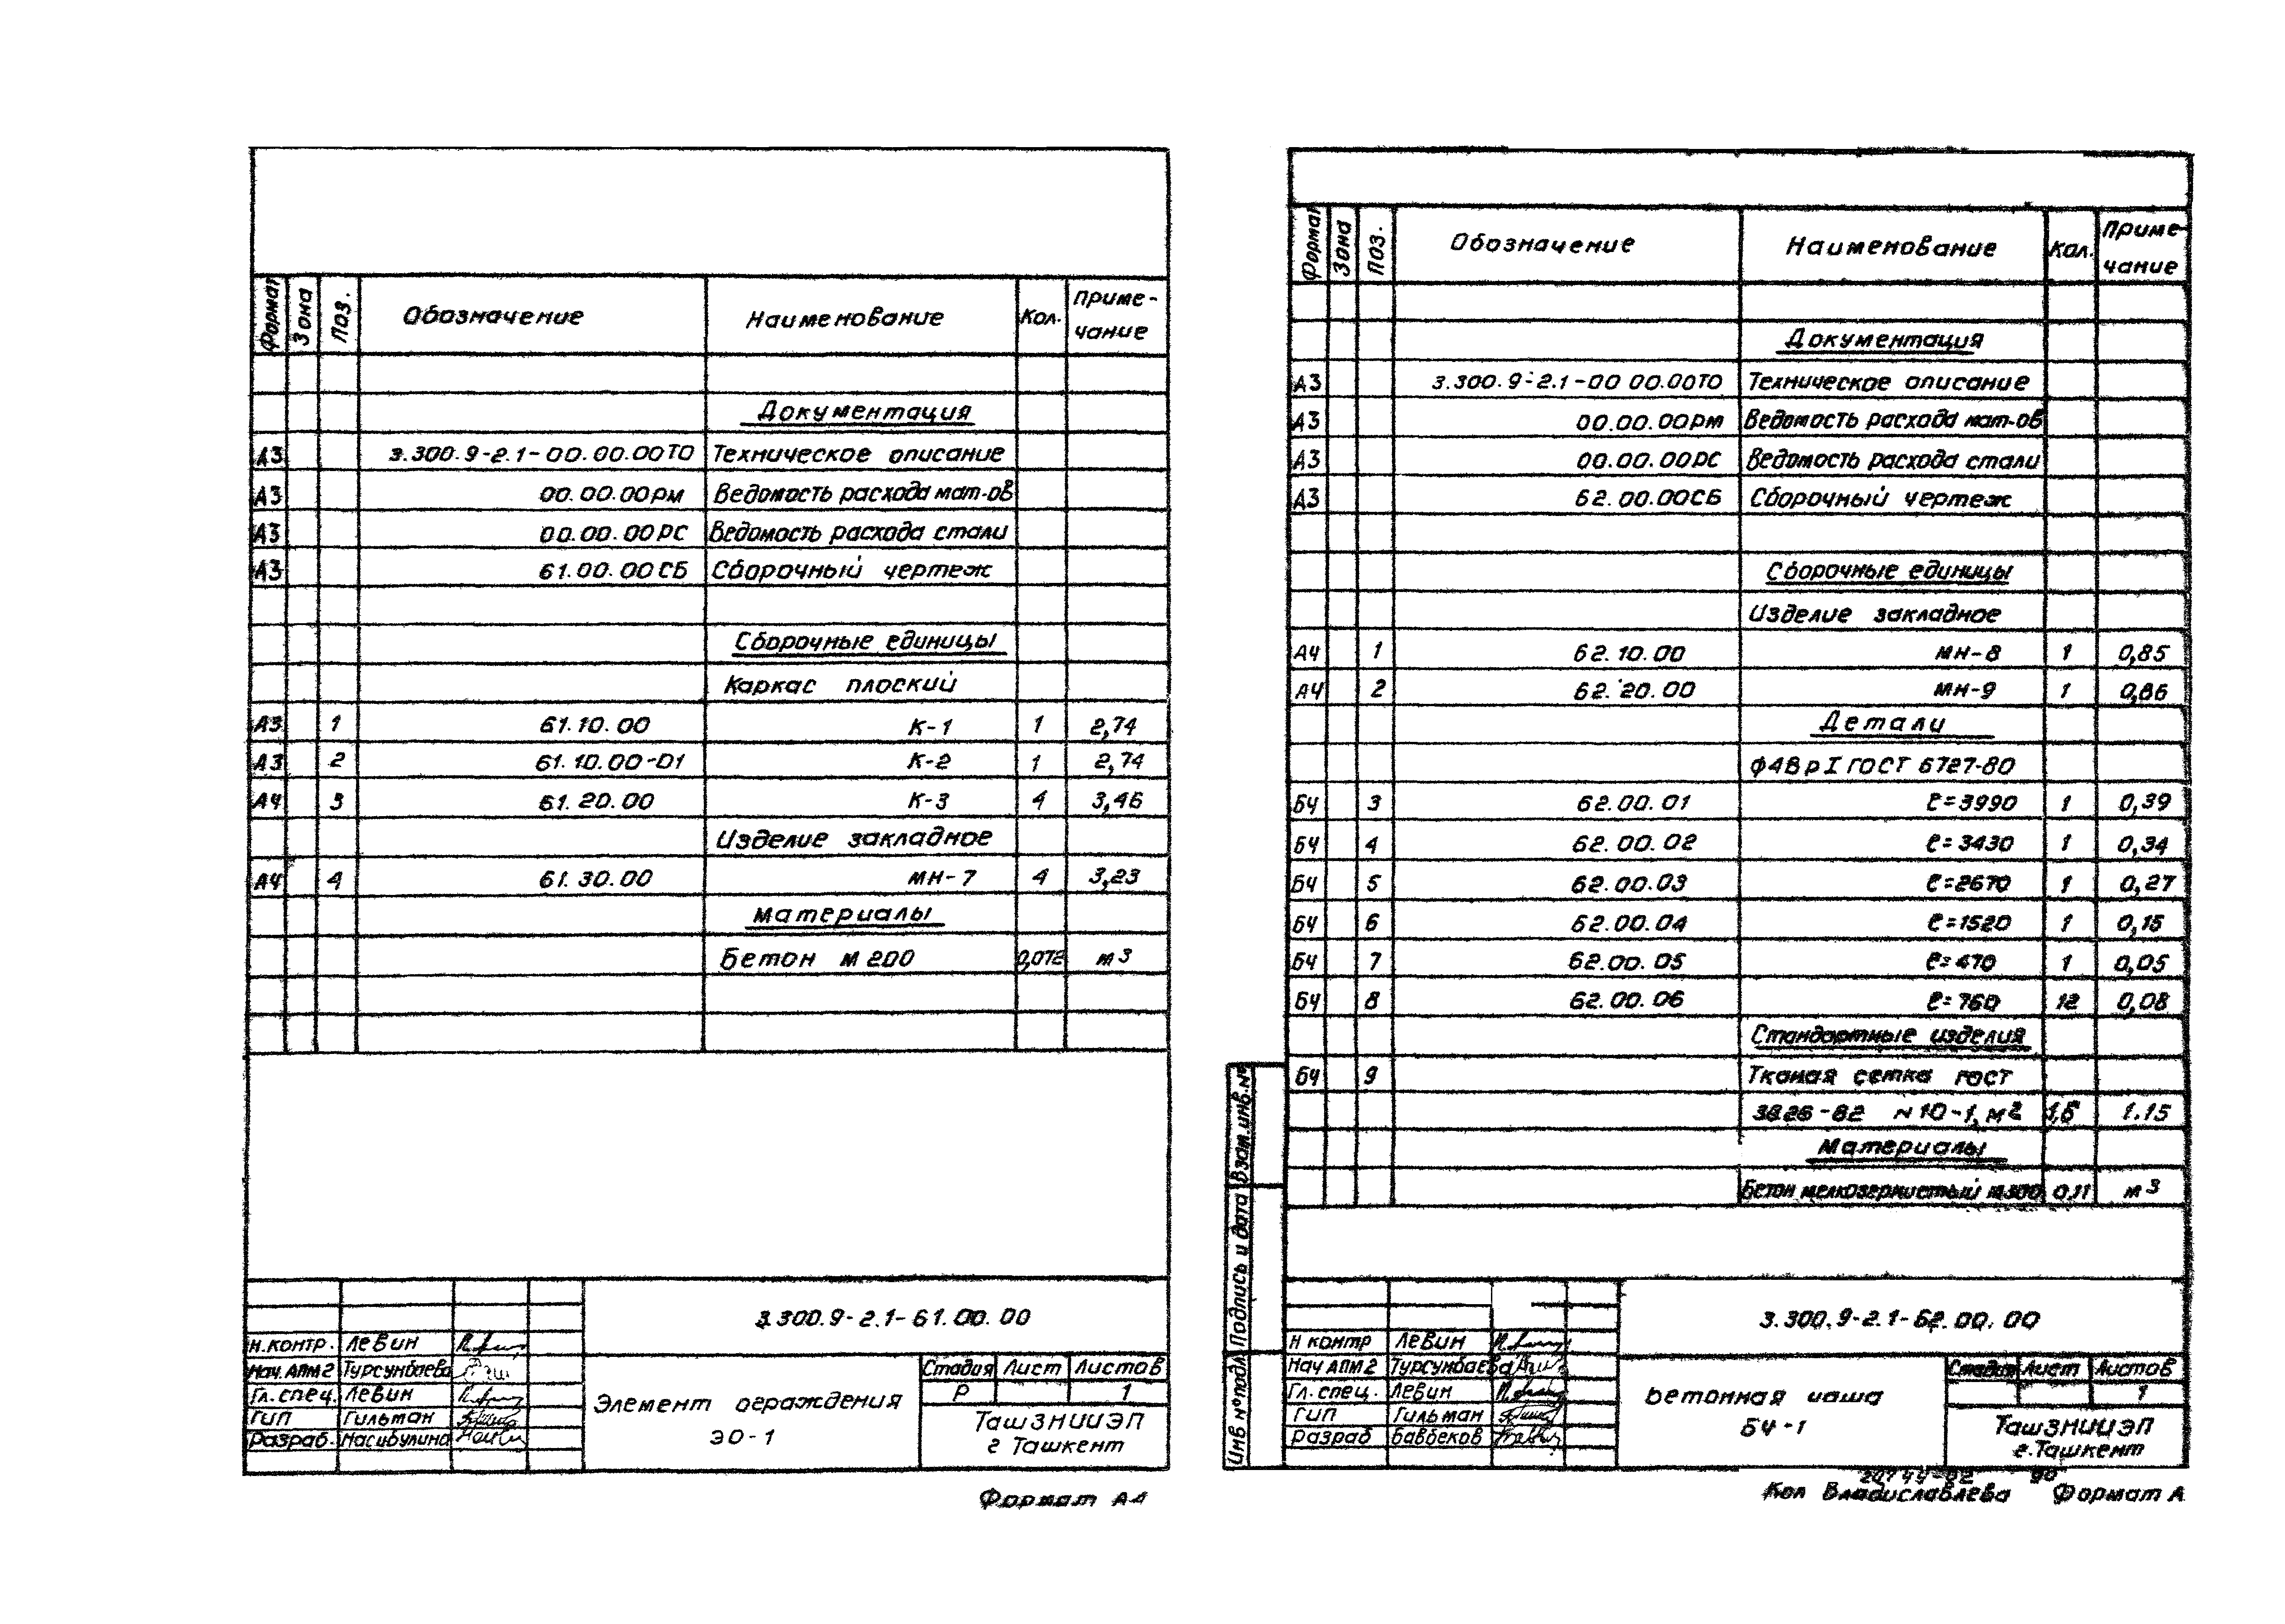 Формат Зона Поз. Обозначение Наименование Кол. Приме-
чание
Документация
А3 3.300.9-2.1-00.00.00ТО Техническое описание
А3 00.00.00РМ Ведомость расхода мат-ов
А3 00.00.00РС Ведомость расхода стали
А3 61.00.00СБ Сборочный чертеж
Сборочные единицы
Каркас плоский
А3 1 61.10.00 К-1 1 2,74
А3 2 61.10.00-01 К-2 1 2,74
А4 3 61.20.00 К-3 4 3,46
Изделие закладное
А4 4 61.30.00 МН-7 4 3,23
Материалы
Бетон М200 0,072 м3
3.300.9-2.1-61.00.00
Н.контр. Левин
Нач. АПМ2 Турсунбаева
Гл. спец. Левин
ГИП Гильман
Разраб. Насибулина
Элемент ограждения
ЭО-1
Стадия Лист Листов
Р 1
ТашЗНИИЭП
г Ташкент
Формат А4
Формат Зона Поз. Обозначение Наименование Кол. Приме-
чание
Документация
А3 3.300.9-2.1-00 00.00ТО Техническое описание
А3 00.00.00РМ Ведомость расхода мат-ов
А3 00.00.00РС Ведомость расхода стали
А3 62.00.00СБ Сборочный чертеж
Сборочные единицы
Изделие закладное
А4 1 62.10.00 МН-8 1 0,85
А4 2 62.20.00 МН-9 1 0,86
Детали
Ф4ВрI ГОСТ 6727-80
БЧ 3 62.00.01 ℓ=3990 1 0,39
БЧ 4 62.00.02 ℓ=3430 1 0,34
БЧ 5 62.00.03 ℓ=2670 1 0,27
БЧ 6 62.00.04 ℓ=1520 1 0,15
БЧ 7 62.00.05 ℓ=470 1 0,05
БЧ 8 62.00.06 ℓ=760 12 0,08
Стандартные изделия
БЧ 9 Тканая сетка ГОСТ
3826-82 N10-1, м2 1,6 1.15
Материалы
Бетон мелкозернистый М300 0,11 м3
Взам.инв.№
Подпись и дата
Инв №подл
3.300.9-2.1-62.00.00
Н контр Левин
Нач АПМ2 Турсунбаева
Гл. спец. Левин
ГИП Гильман
Разраб Бавбеков
Бетонная чаша
БЧ-1
Стадия Лист Листов
1
ТашЗНИИЭП
г.Ташкент
Кол Владиславлева Формат А